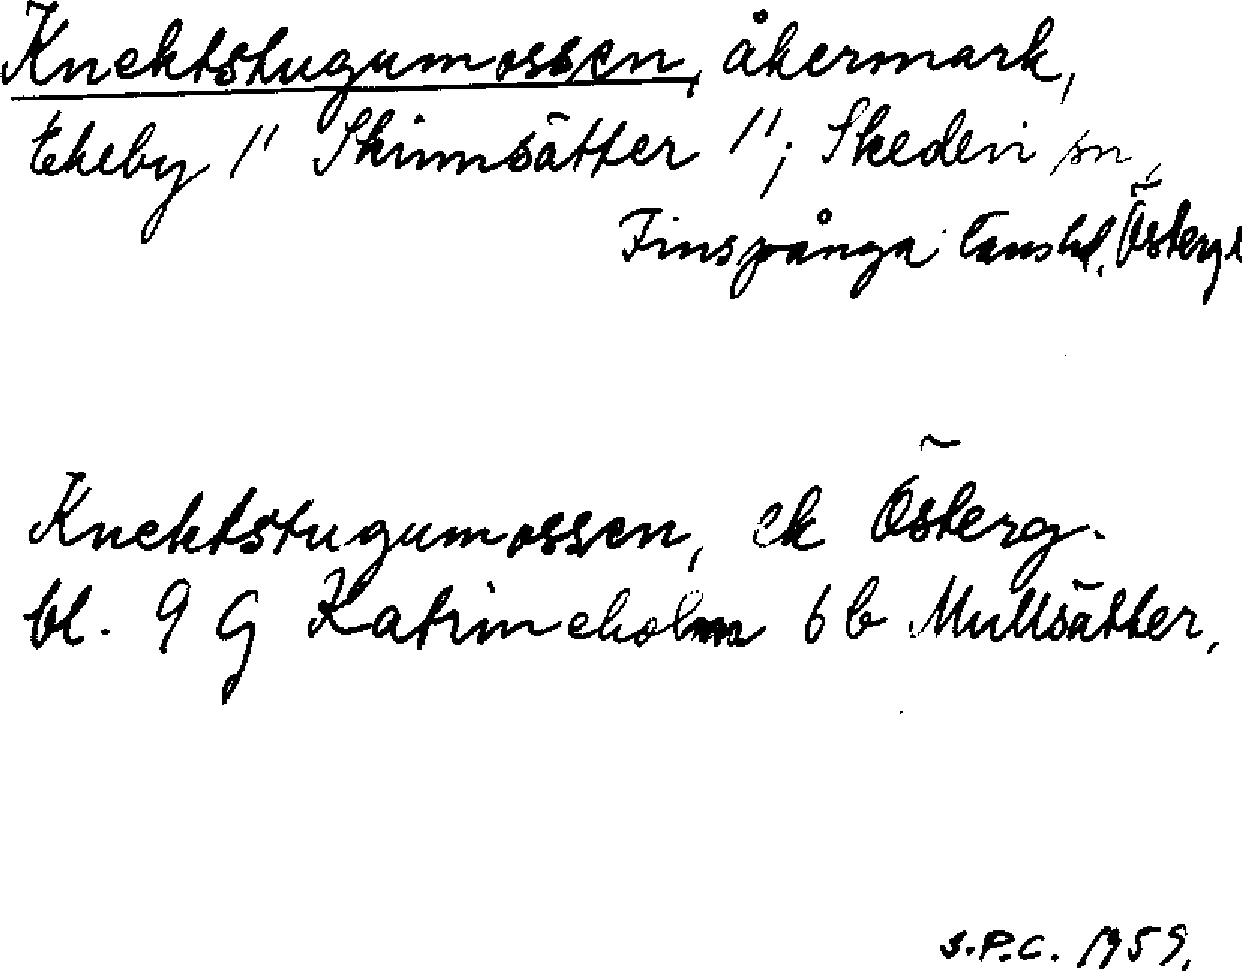 Knektstugumossen, åkermark,
Ekeby 1" Skinnsätter 1"; Skedevi sn,
Finspånga länshd, Österg.
Knektstugumossen, ek Österg.
bl. 9 G Katrineholm 6 b Mullsätter,
S.P.C. 1959.